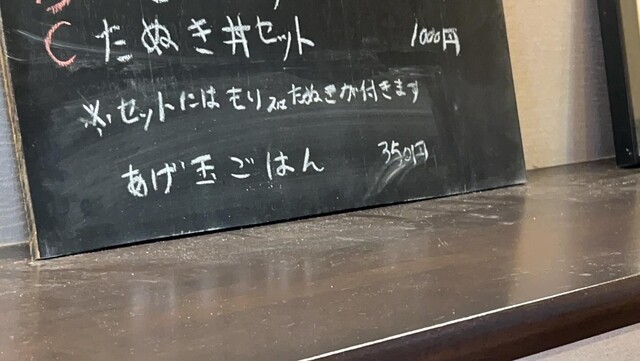 C たぬき丼セット 1000円
※セットにはもり又はたぬきが付きます
あげ玉ごはん 350円